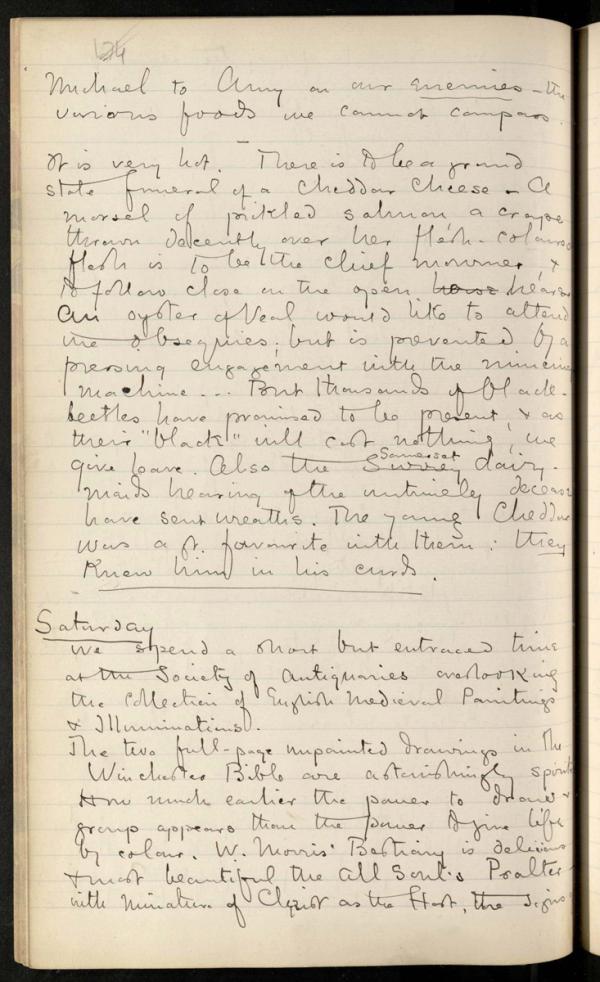 124
Michael to Amy on our enemies - the
various foods we cannot compass.
It is very hot. There is to be a grand
state funeral of a Cheddar Cheese - A
morsel of pickled salmon a crape
thrown decently over her flesh-coloured
flesh is to be the chief mourner, &
to follow close on the open horse hearse
An oyster of Veal would like to attend
the obsequies; but is prevented by a
pressing engagement with the mincing
machine ... But thousands of black-
beetles have promised to be present, & as
their "black" will cost nothing, we
give leave. Also the Surrey Somerset dairy-
maids hearing of the untimely decease
have sent wreaths. The young Cheddar
was a gt. favourite with them: they
Knew him in his curds.
Saturday
We spend a short but entraced time
at the Society of Antiquaries overlooking
the collection of English Medieval Paintings
& Illuminations.
The two full-page unpainted drawings in the
Winchester Bible are astonishingly
How much earlier the power to draw &
group appears than the power to give life
by colour. W. Morris' Bestiary is delicious
& most beautiful the All Souls Psalter
with miniature of Christ as the Host, the signs